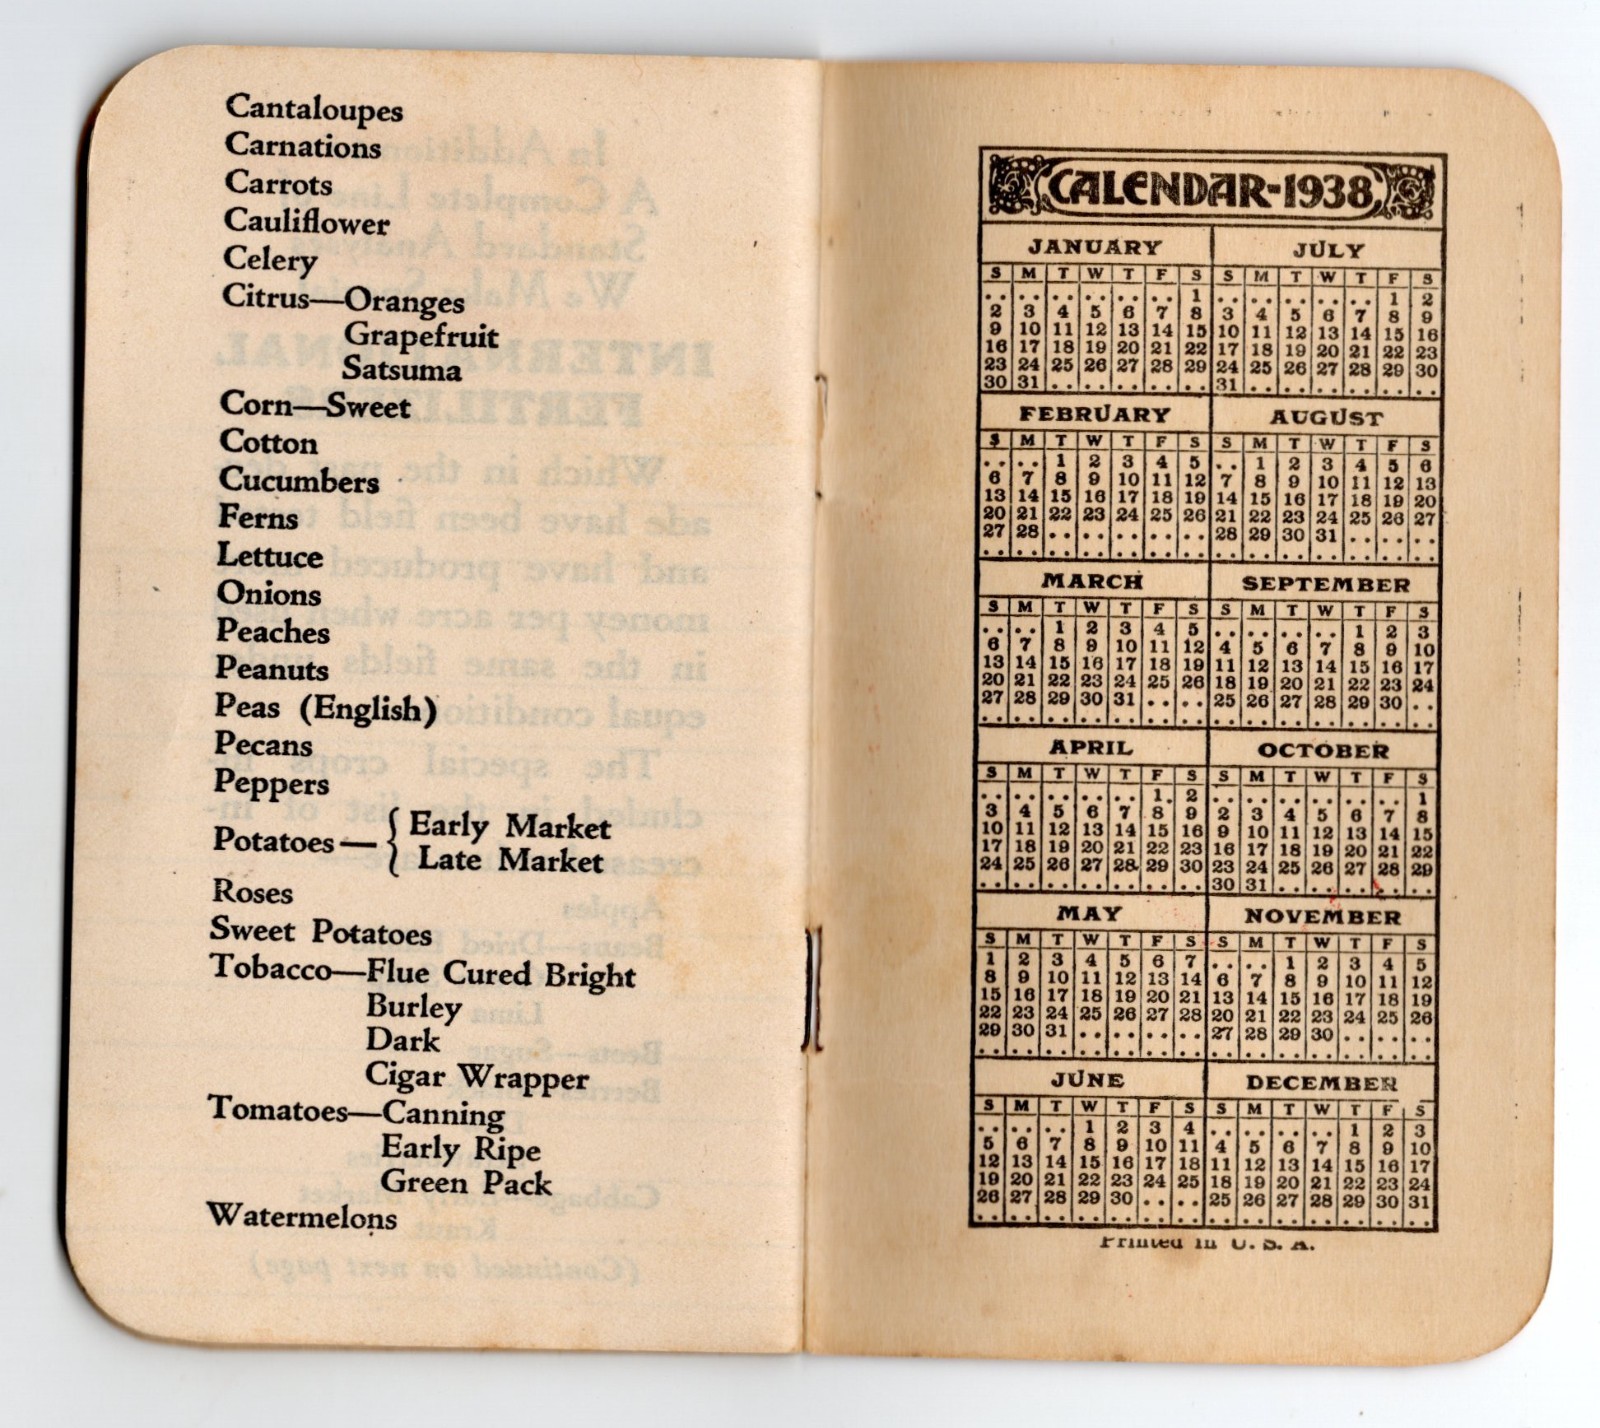 Cantaloupes
Carnations
Carrots
Cauliflower
Celery
Citrus—Oranges
Grapefruit
Satsuma
Corn—Sweet
Cotton
Cucumbers
Ferns
Lettuce
Onions
Peaches
Peanuts
Peas (English)
Pecans
Peppers
Potatoes— { Early Market
Late Market
Roses
Sweet Potatoes
Tobacco—Flue Cured Bright
Burley
Dark
Cigar Wrapper
Tomatoes—Canning
Early Ripe
Green Pack
Watermelons
CALENDAR-1938
JANUARY
S M T W T F S
1
2 3 4 5 6 7 8
9 10 11 12 13 14 15
16 17 18 19 20 21 22
23 24 25 26 27 28 29
30 31
FEBRUARY
S M T W T F S
1 2 3 4 5
6 7 8 9 10 11 12
13 14 15 16 17 18 19
20 21 22 23 24 25 26
27 28
MARCH
S M T W T F S
1 2 3 4 5
6 7 8 9 10 11 12
13 14 15 16 17 18 19
20 21 22 23 24 25 26
27 28 29 30 31
APRIL
S M T W T F S
1 2
3 4 5 6 7 8 9
10 11 12 13 14 15 16
17 18 19 20 21 22 23
24 25 26 27 28 29 30
MAY
S M T W T F S
1 2 3 4 5 6 7
8 9 10 11 12 13 14
15 16 17 18 19 20 21
22 23 24 25 26 27 28
29 30 31
JUNE
S M T W T F S
1 2 3 4
5 6 7 8 9 10 11
12 13 14 15 16 17 18
19 20 21 22 23 24 25
26 27 28 29 30
JULY
S M T W T F S
1 2
3 4 5 6 7 8 9
10 11 12 13 14 15 16
17 18 19 20 21 22 23
24 25 26 27 28 29 30
31
AUGUST
S M T W T F S
1 2 3 4 5 6
7 8 9 10 11 12 13
14 15 16 17 18 19 20
21 22 23 24 25 26 27
28 29 30 31
SEPTEMBER
S M T W T F S
1 2 3
4 5 6 7 8 9 10
11 12 13 14 15 16 17
18 19 20 21 22 23 24
25 26 27 28 29 30
OCTOBER
S M T W T F S
1
2 3 4 5 6 7 8
9 10 11 12 13 14 15
16 17 18 19 20 21 22
23 24 25 26 27 28 29
30 31
NOVEMBER
S M T W T F S
1 2 3 4 5
6 7 8 9 10 11 12
13 14 15 16 17 18 19
20 21 22 23 24 25 26
27 28 29 30
DECEMBER
S M T W T F S
1 2 3
4 5 6 7 8 9 10
11 12 13 14 15 16 17
18 19 20 21 22 23 24
25 26 27 28 29 30 31
Printed in U. S. A.